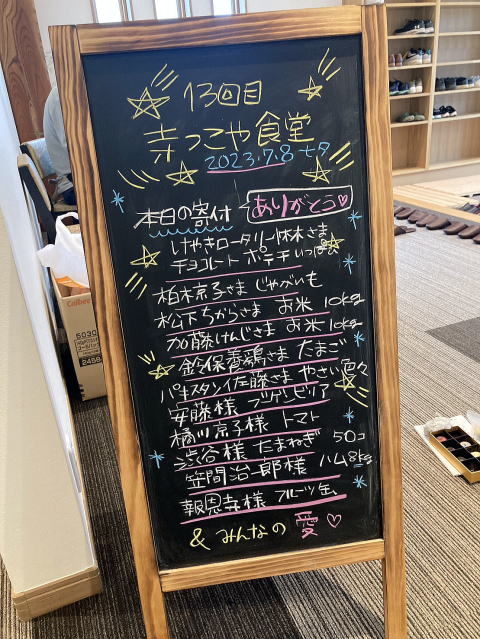 13回目
寺っこや食堂
2023.7.8 土夕
本日の寄付 ありがとう♡
けやきロータリー 様
チョコレート ポテチ いっぱい
柏木京子さま じゃがいも
松下ちからさま お米 10kg
加藤けんじさま お米 10kg
鈴保養鶏さま たまご
パキスタン佐藤さま やさい色々
安藤様 ブーゲンビリア
橘川京子様 トマト
渋谷様 たまねぎ 50コ
笠間治一郎様 ハム8kg
報恩寺様 フルーツ缶
& みんなの 愛 ♡
Calbee